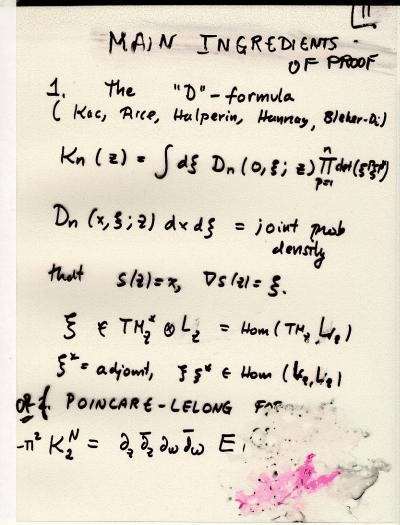 11
MAIN INGREDIENTS
OF PROOF
1. The "D"-formula
( Kac, Rice, Halperin, Hannay, Bleher-Di)
Kn (z) = ∫ dξ Dn (0, ξ; z) ∏ₚ₌₁ⁿ det(ξᵖξᵖ*)
Dn (x, ξ; z) dx dξ = joint prob
density
that s(z)=x, ∇s(z)= ξ.
ξ ∈ TM*z ⊗ Lz = Hom (TMz, Lz)
ξ* = adjoint, ξξ* ∈ Hom (Lz, Lz)
POINCARE-LELONG
-π² K₂ᴺ = ∂z ∂̄z ∂w ∂̄w E